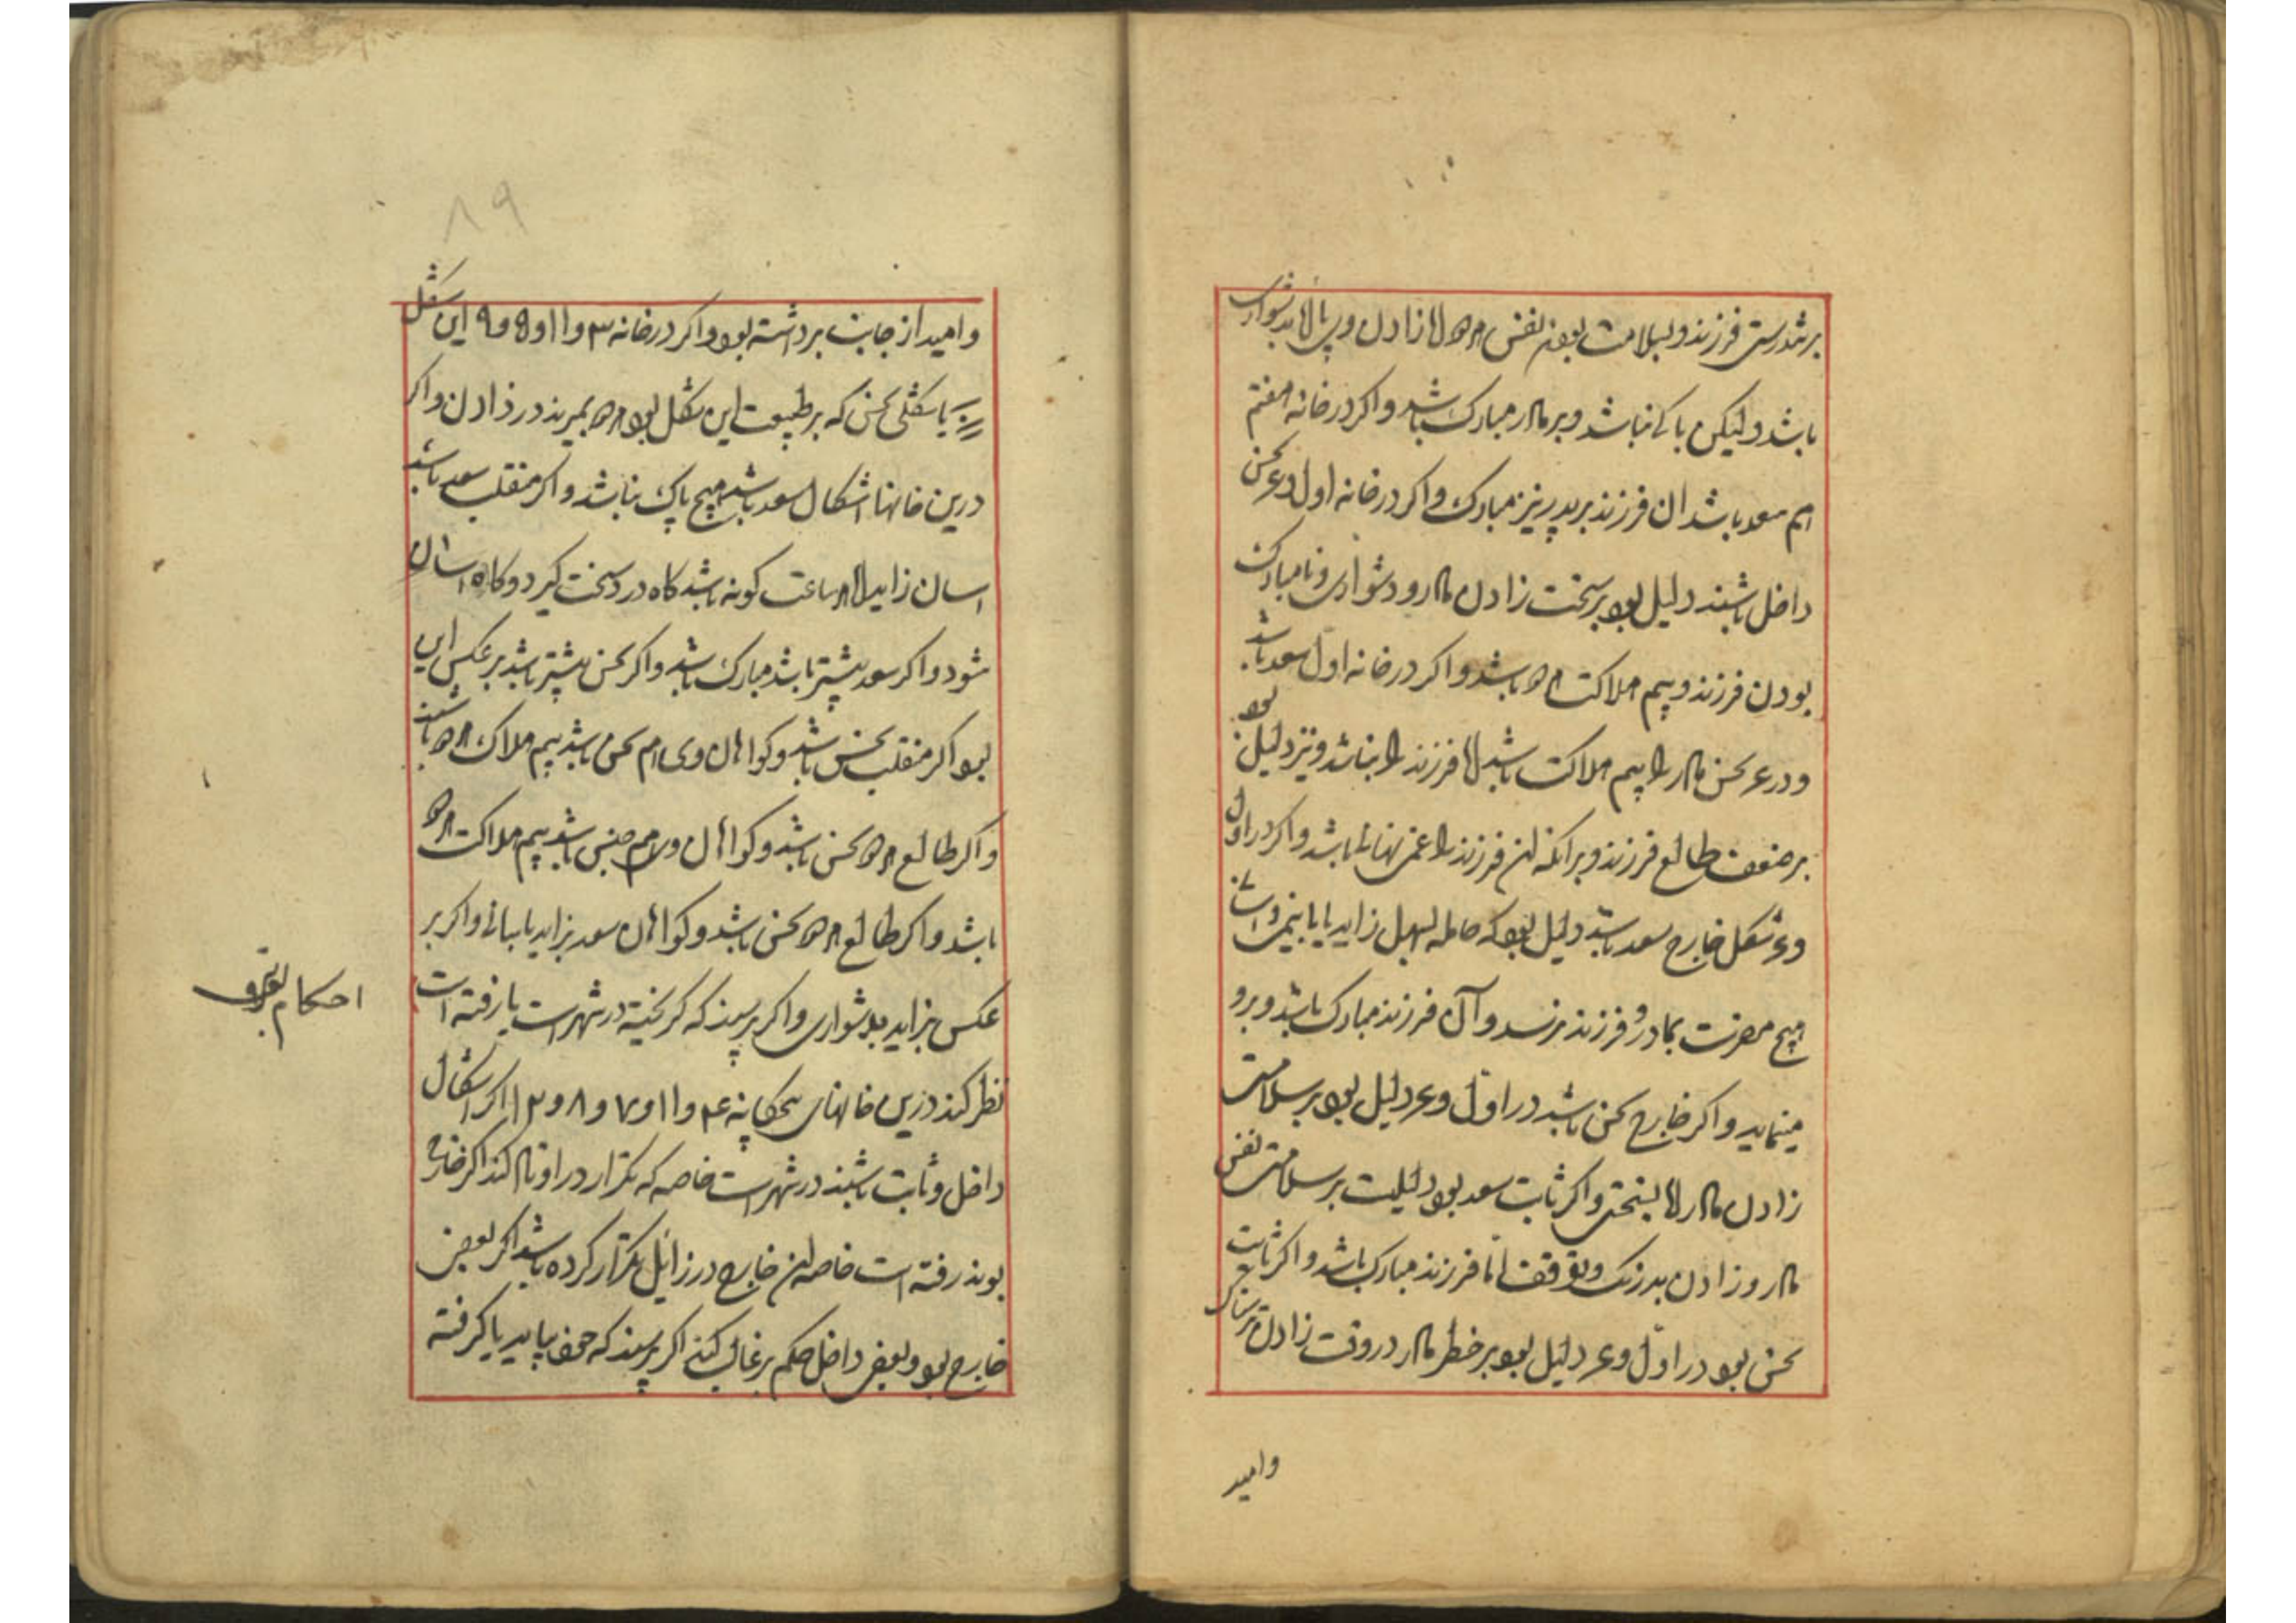 بر تندرستی فرزند و بسلامت بودن نفس مادر از زادن و بس اما بدشواری
باشد ولیکن باکی نباشد و بر مادر مبارک باشد و اکر در خانه هفتم
هم سعد باشد ان فرزند بر پدر نیز مبارک و اکر در خانه اول و ع نحس
داخل باشند دلیل بود بر سخت زادن مادر و دشواری و نامبارک
بودن فرزند و بیم هلاکت مادر باشد و اکر در خانه اول سعد باشد
و در ع نحس مادر را بیم هلاکت باشد اما فرزند را نباشد و نیز دلیل بود
بر ضعف طالع فرزند و برانکه ان فرزند را عمر نباشد و اکر در اول
و ع شکل خارج سعد باشد دلیل بود که حامله سهل زاید
هیچ مضرت بمادر و فرزند نرسد و آن فرزند مبارک باشد و برو
مینماید و اکر خارج نحس باشد در اول و ع دلیل بود بر سلامت
زادن مادر اما بسختی و اکر ثابت سعد بود دلیلست بر سلامتی نفس
مادر و زادن بدرنک و توقف اما فرزند مبارک باشد و اکر ثابت
نحس بود در اول و ع دلیل بود بر خطر مادر در وقت زادن
وامید
۸۹
وامید از جانب برداشته بود و اکر در خانه ۳ و ۱۱ و ۵ و ۹ این شکل
یا شکلی نحس که بر طبیعت این شکل بود مادر بمیرند در زادن و اکر
درین خانها اشکال سعد باشد هیچ باک نباشد و اکر منقلب سعد باشد
اسان زاید اما ساعت کونه باشد کاه درد سخت کیرد و کاه اسان
شود و اکر سعد بیشتر باشد مبارک باشد و اکر نحس بیشتر باشد بر عکس این
بود اکر منقلب نحس باشد و کواهان وی هم نحس باشد بیم هلاک مادر باشد
و اکر طالع مادر نحس باشد و کواهان او هم جنس باشد بیم هلاکت مادر
باشد و اکر طالع مادر نحس باشد و کواهان سعد بزاید باسانی و اکر بر
عکس بزاید بدشواری و اکر پرسند که کریخته در شهر است یا رفته است
نظر کند درین خانهای پنجکانه ۴ و ۱۱ و ۷ و ۸ و ۱۲ اکر اشکال
داخل و ثابت باشند در شهر است خاصه که تکرار در اوتاد کند اکر خارج
بوند رفته است خاصه ان خارج در زایل تکرار کرده باشد اکر بعضی
خارج بود و بعضی داخل حکم بر غالب کند اکر پرسند که خود بیاید یا کرفته
احکام